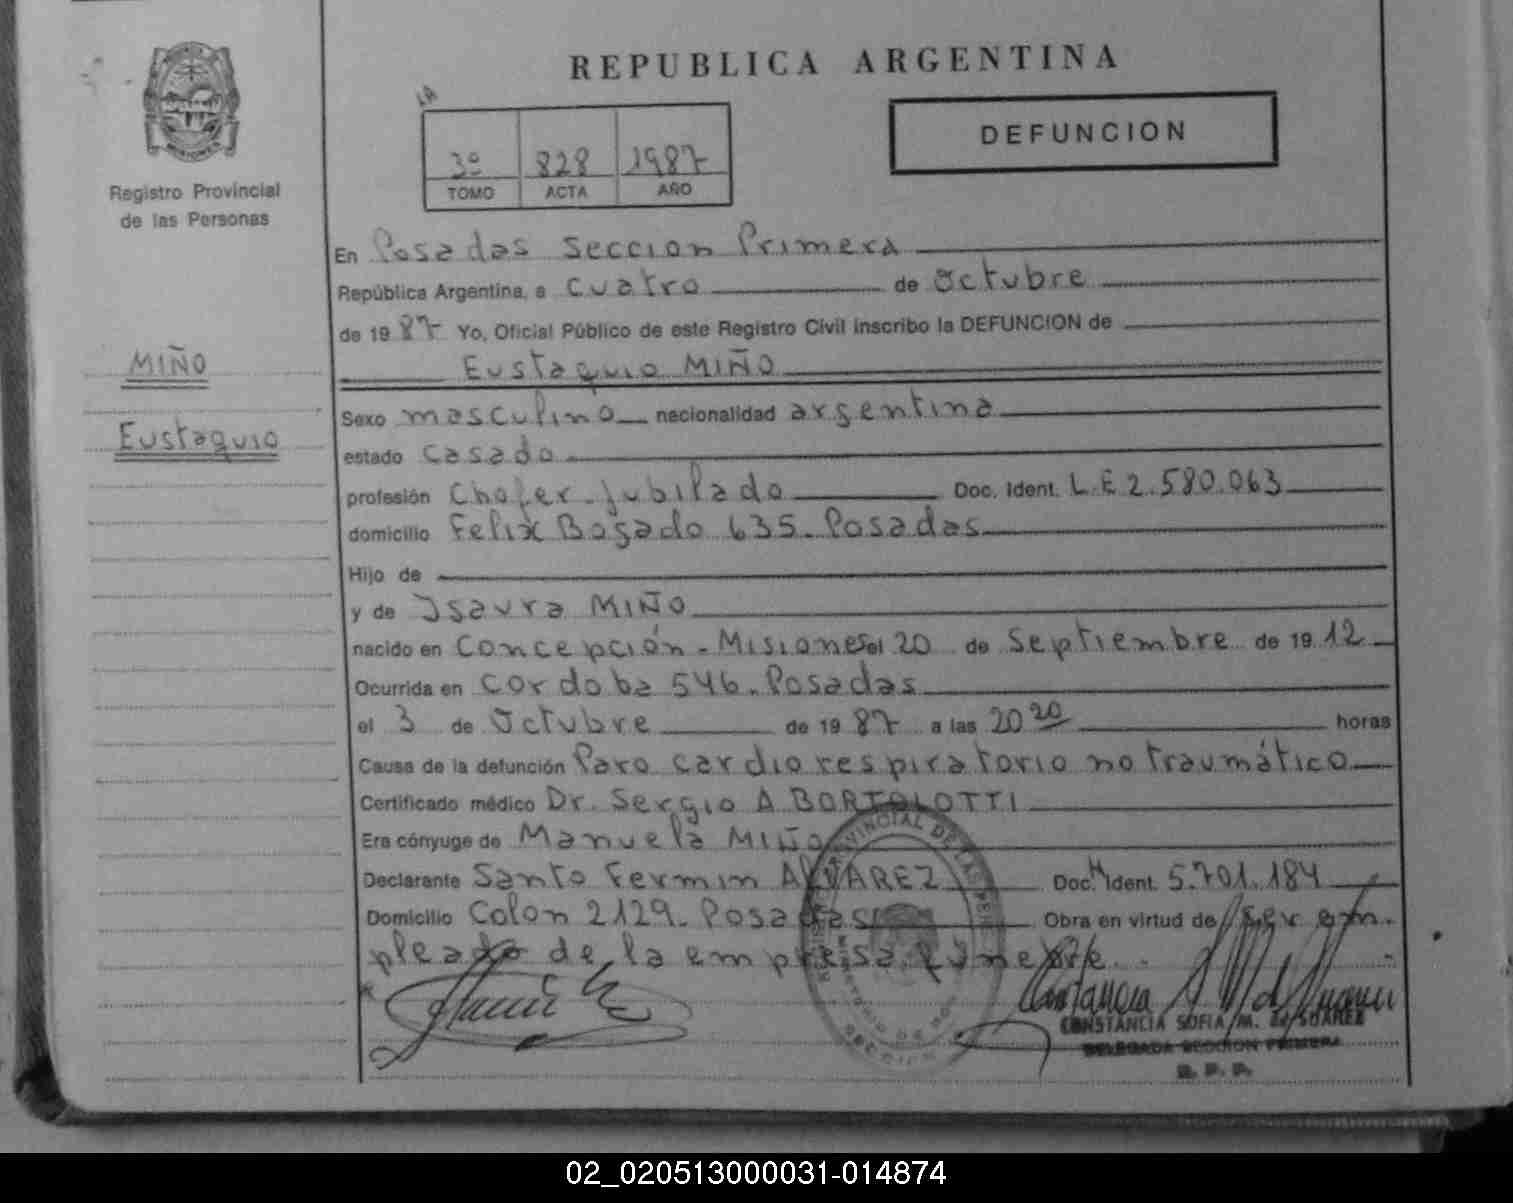 REPUBLICA ARGENTINA
1A
3º 828 1987
TOMO ACTA AÑO
DEFUNCION
MISIONES
Registro Provincial
de las Personas
MIÑO
Eustaquio
En Posadas Seccion Primera
República Argentina, a cuatro de Octubre
de 1987 Yo, Oficial Público de este Registro Civil inscribo la DEFUNCION de
Eustaquio MIÑO
Sexo masculino nacionalidad argentina
estado casado
profesión Chofer-jubilado Doc. Ident. L.E 2.580.063
domicilio Felix Bogado 635. Posadas
Hijo de
y de Isaura MIÑO
nacido en Concepción - Misiones el 20 de Septiembre de 1912
Ocurrida en cordoba 546. Posadas
el 3 de Octubre de 1987 a las 20 20 horas
Causa de la defunción Paro cardiorespiratorio no traumático
Certificado médico Dr. Sergio A BORTOLOTTI
Era cónyuge de Manuela MIÑO
Declarante Santo Fermin ALVAREZ Doc. Ident. 5.701.184
Domicilio Colon 2129. Posadas Obra en virtud de ser em-
pleado de la empresa funebre.
CONSTANCIA SOFIA M. de SUAREZ
DELEGADA SECCION PRIMERA
R. P. P.
02_020513000031-014874